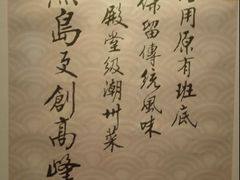 用原有班底
保留傳統風味
殿堂級潮州菜
島又創高峰